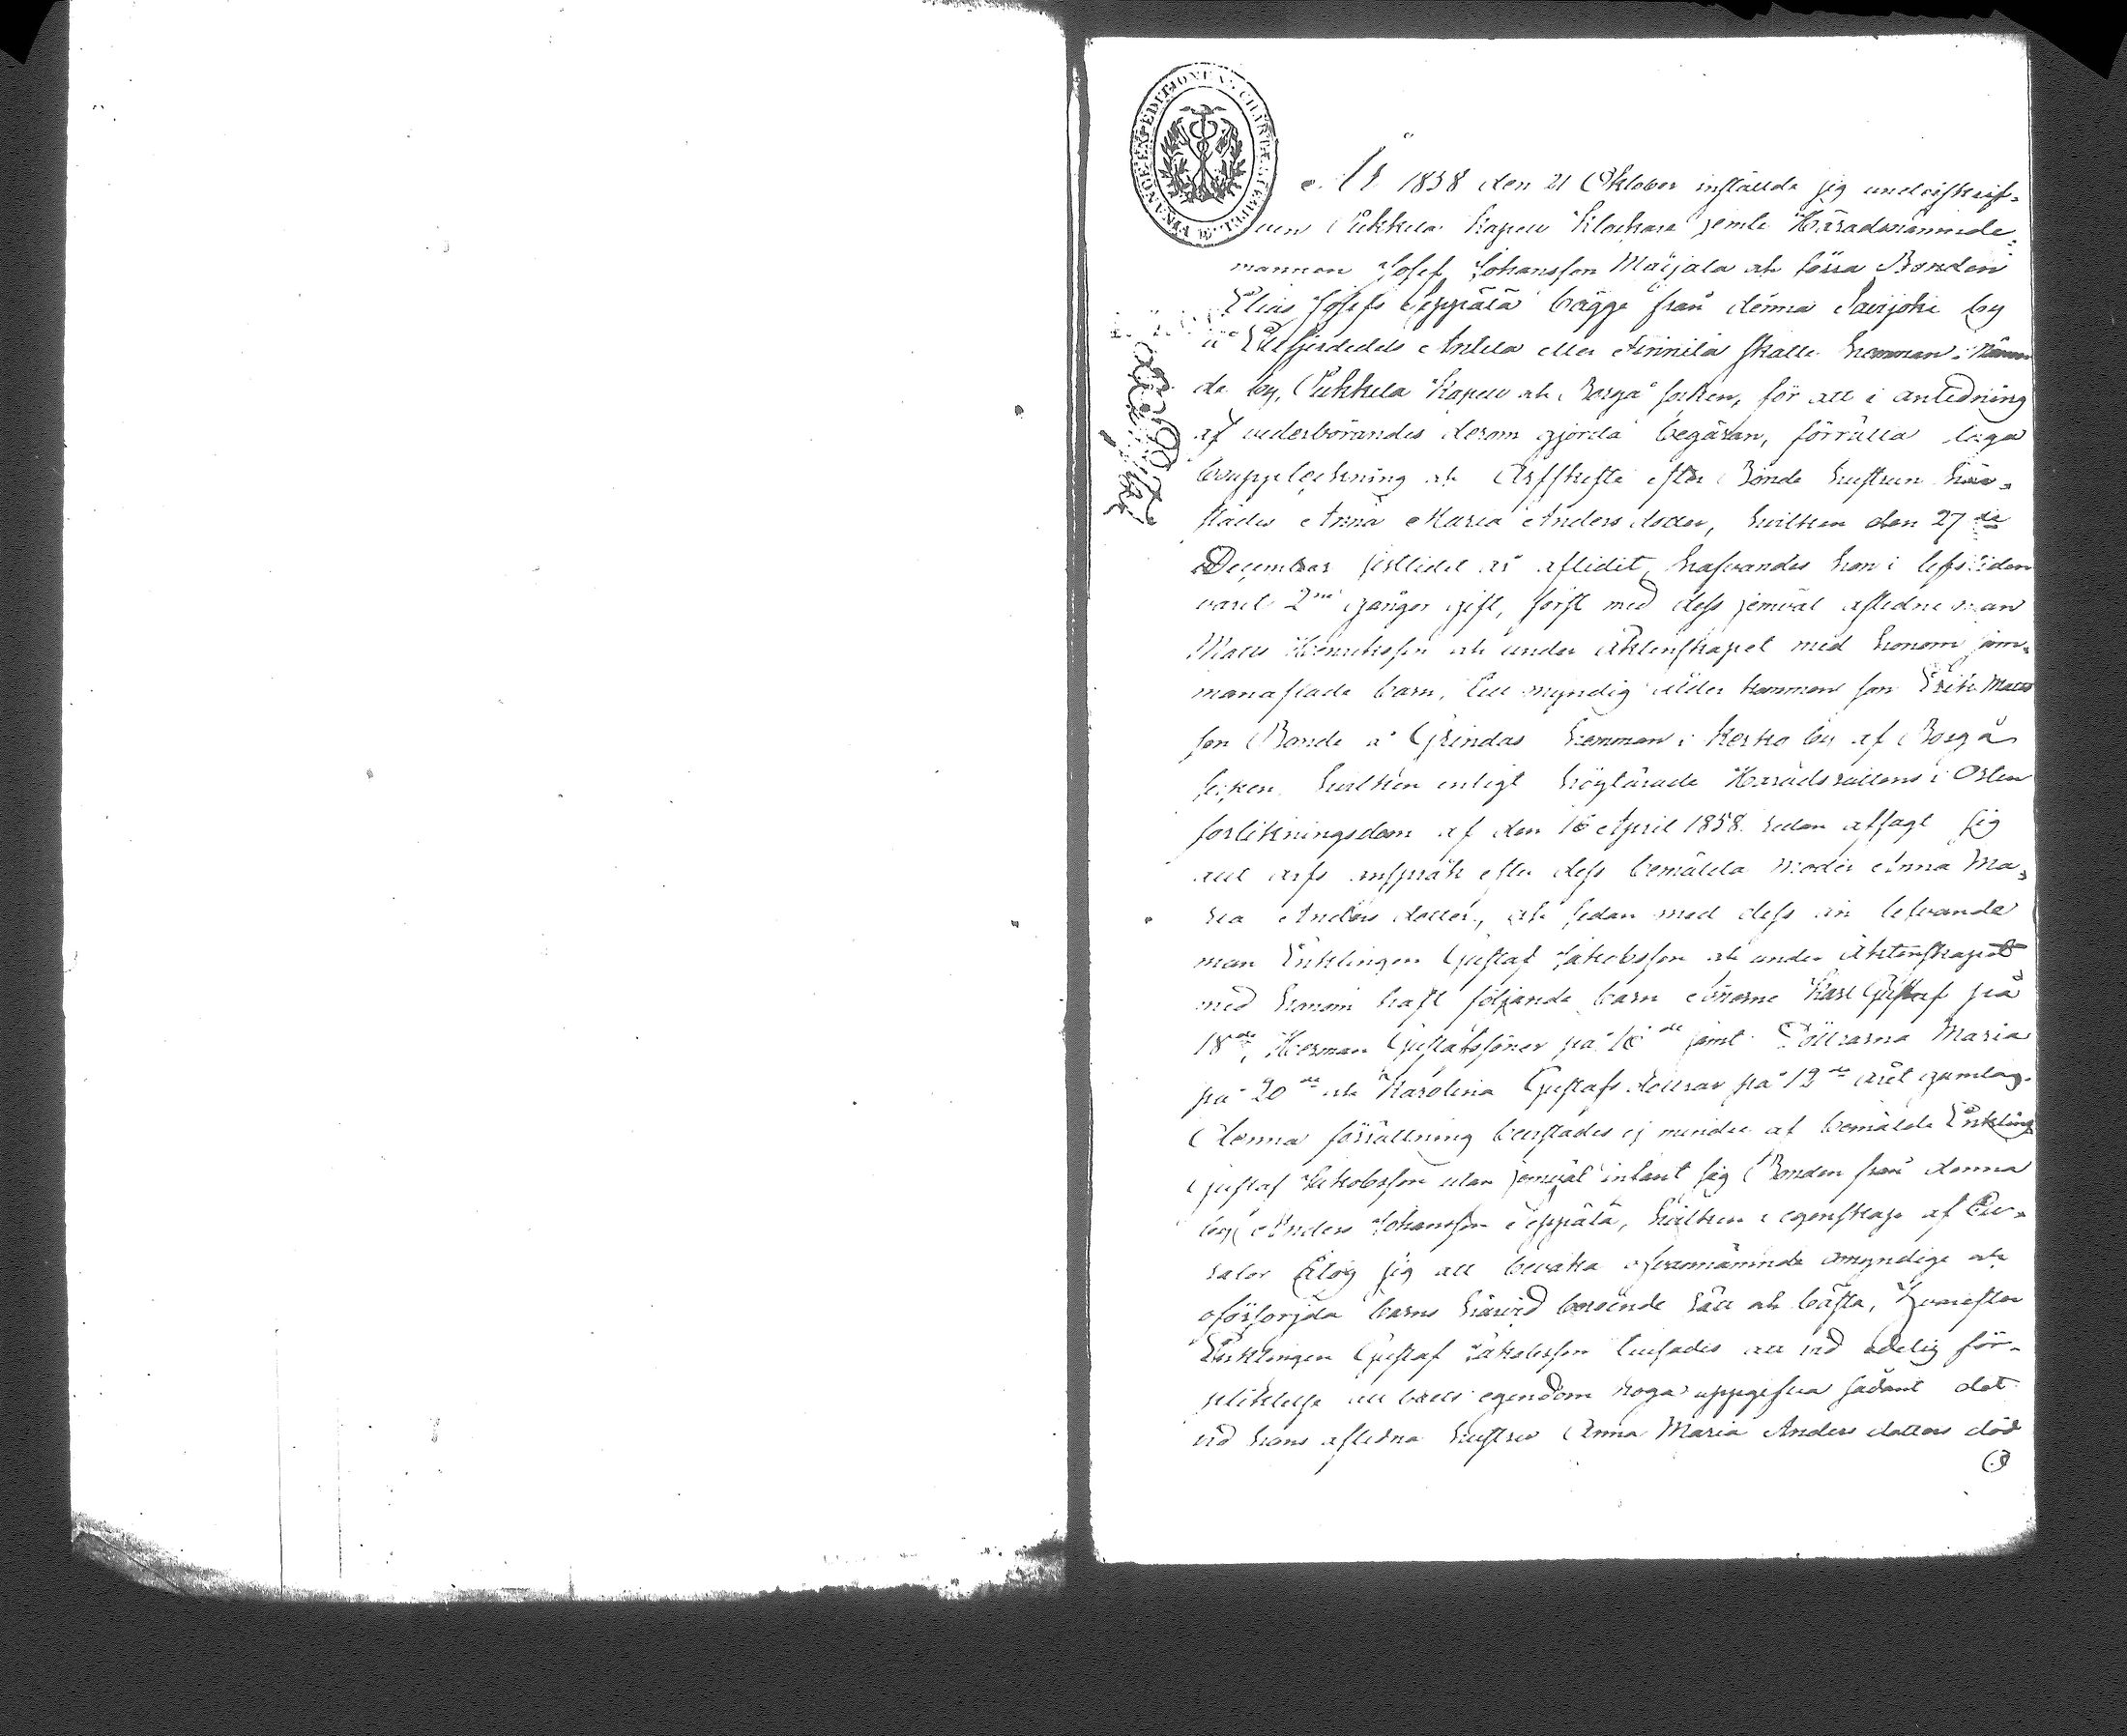 År 1858 den 21 Oktober instälde sig underskrif-
ven Pukkila Kapell Klockare jemte Häradsnämnde-
mannen Josef Johansson Maijala och förra Bonden
Elias Josefs Seppälä bägge från denna Savijoki by
å Ettfjerdedels Anttila eller Finnilä skatte hemman i nämn
de by, Pukkila Kapell och Borgå socken, för att i anledning
af vederbörandes derom gjorda begäran, förrätta laga
bouppteckning och Arfskifte efter Bonde hustrun här-
städes Anna Maria Anders dotter, hvilken den 27de
December sistlidet år aflidit, hafvandes hon i lifstiden
varit 2ne gånger gift, först med dess jemväl aflidne man
Matts Henriksson och under äktenskapet med honom sam-
manaflade barn, till myndig ålder kommen son Erik Matts
son Bonde å Grindas hemman i Kerko by af Borgå
socken hvilken enligt höglärade Häradsrättens i Orten
förlikningsdom af den 16 April 1858 redan afsagt sig
allt arfs anspråk efter dess bemälda moder Anna Ma-
ria Anders dotter, och sedan med dess än lefvande
man Enklingen Gustaf Jakobsson och under äktenskapet
med honom haft följande barn Sönerne Karl Gustaf på
18de, Herman Gustafssöner på 16de samt Döttrarna Maria
på 20de och Karolina Gustafs döttrar på 12de året gamla.
Denna förrättning bevistades ej mindre af bemälde Enkling
Gustaf Jakobsson utan jemväl infant sig Bonden från denna
by Anders Johansson Seppälä, hvilken i egenskap af Cu-
rator åtog sig att bevaka ofvannämnde omyndige och
oförsörjda barns härvid beroende rätt och bästa, hvarefter
Enklingen Gustaf Jakobsson lufvades att vid edelig för-
pliktelse all boets egendom noga uppgifva sådant det
vid hans aflidna hustrus Anna Maria Anders dotters död